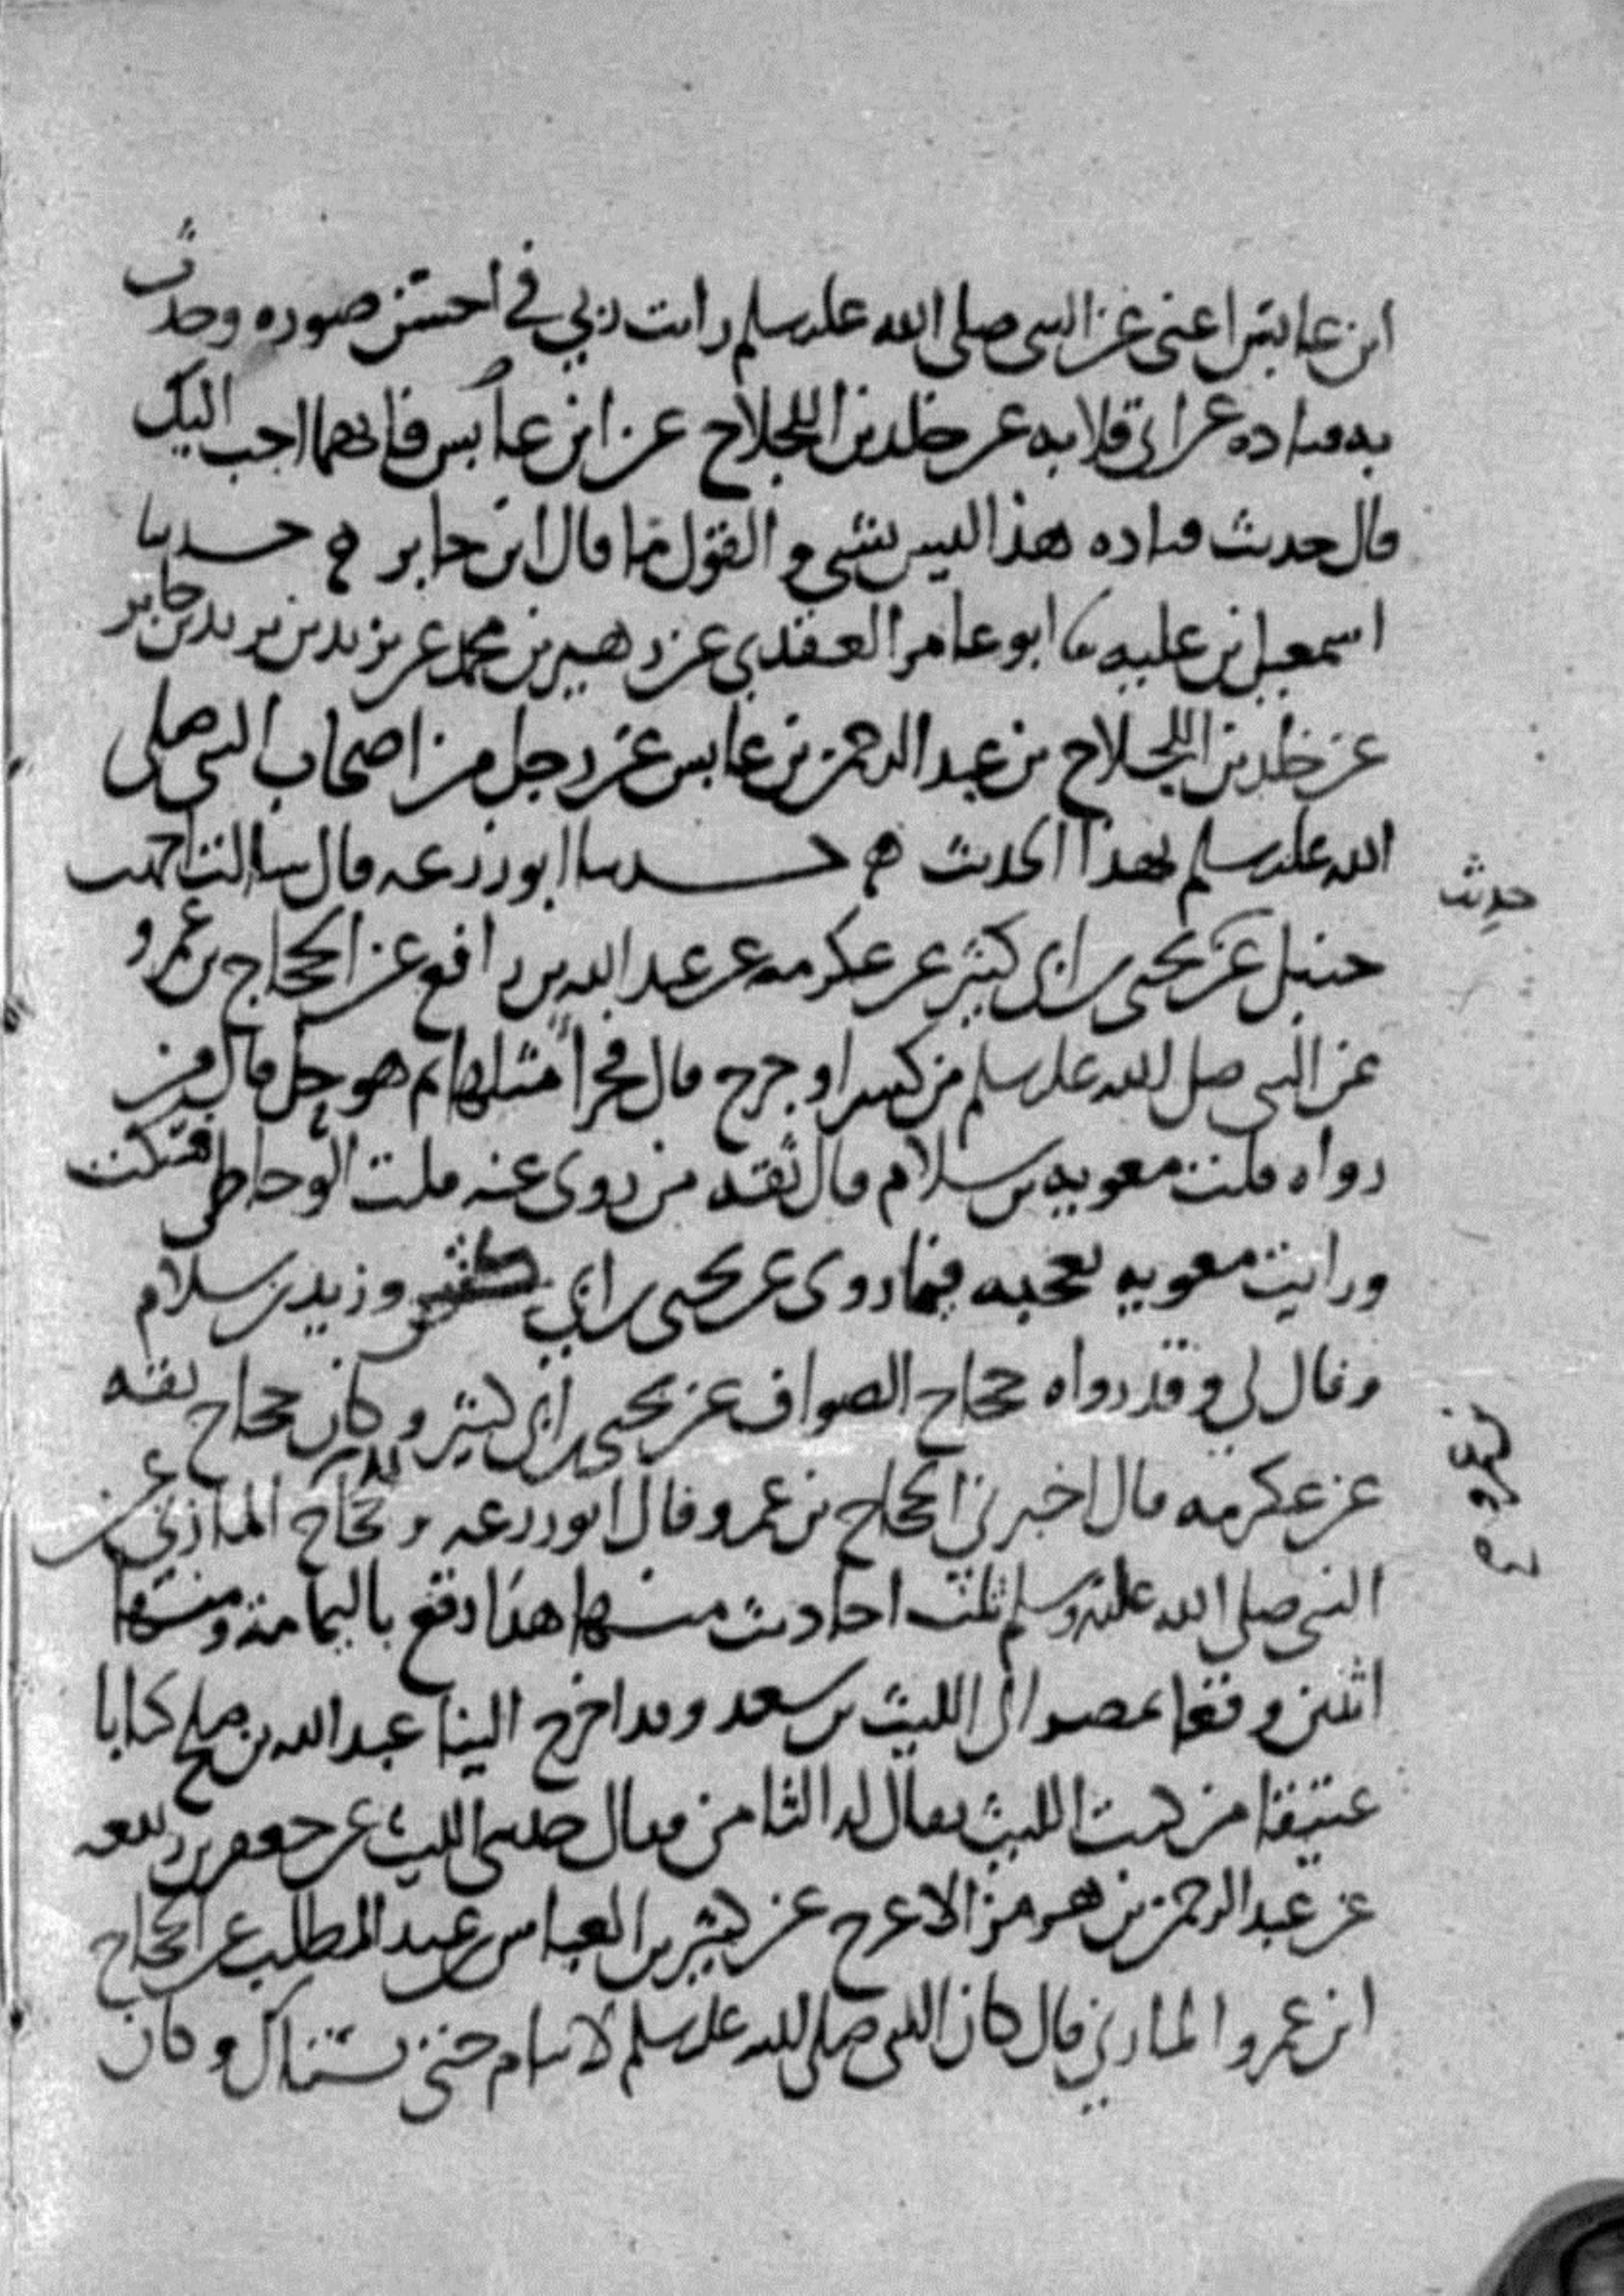 ابن عابس اعنى عن النبى صلى الله عليه وسلم رايت ربي في احسن صوره وحدث
به قتاده عن ابى قلابه عن خلد بن اللجلاج عن ابن عابس فايهما احب اليك
قال حديث قتاده هذا ليس بشى والقول ما قال ابن جابر ه حدثنا
اسمعيل بن عليه ثنا ابو عامر العقدي عن زهير بن محمد عن يزيد بن يزيد بن جابر
عن خلد بن اللجلاج عن عبد الرحمن بن عابس عن رجل من اصحاب النبى صلى
الله عليه وسلم بهذا الحديث ه حدثنا ابو زرعه قال سالت احمد بن
حنبل عن يحيى بن ابى كثير عن عكرمه عن عبد الله بن رافع عن الحجاج بن عمرو
حديث
عن النبى صلى الله عليه وسلم من كسر او عرج قال يجزا مثلها ثم هو حل قال من
رواه قلت معويه بن سلام قال ثقه من روى عنه قلت الوحاظى فسكت
ورايت معويه يعجبه فيما روى عن يحيى بن ابي كثير وزيد بن سلام
وقال لى وقد رواه حجاج الصواف عن يحيى بن ابى كثير وكان حجاج ثقه
عن عكرمه قال اخبرنى الحجاج بن عمرو قال ابو زرعه وحجاج المازنى عن
النبى صلى الله عليه وسلم ثلث احاديث منها هذا وقع باليمامة ومنها
اثنين وقعا بمصر الى الليث بن سعد وقد اخرج الينا عبد الله بن صلح كتابا
عتيقا من كتب الليث يقال له الثامن وقال حدثنى الليث عن جعفر بن ربيعه
عن عبد الرحمن بن هرمز الاعرج عن كثير بن العباس بن عبد المطلب عن الحجاج
ابن عمرو المازني قال كان النبى صلى الله عليه وسلم لا ينام حتى يستاك وكان